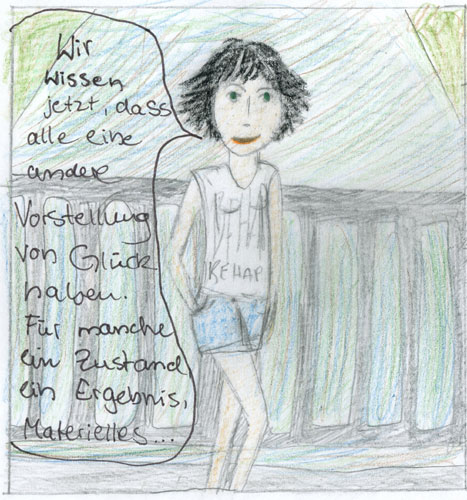 Wir
wissen
jetzt, dass
alle eine
andere
Vorstellung
von Glück
haben.
Für manche
ein Zustand
ein Ergebnis,
Materielles...